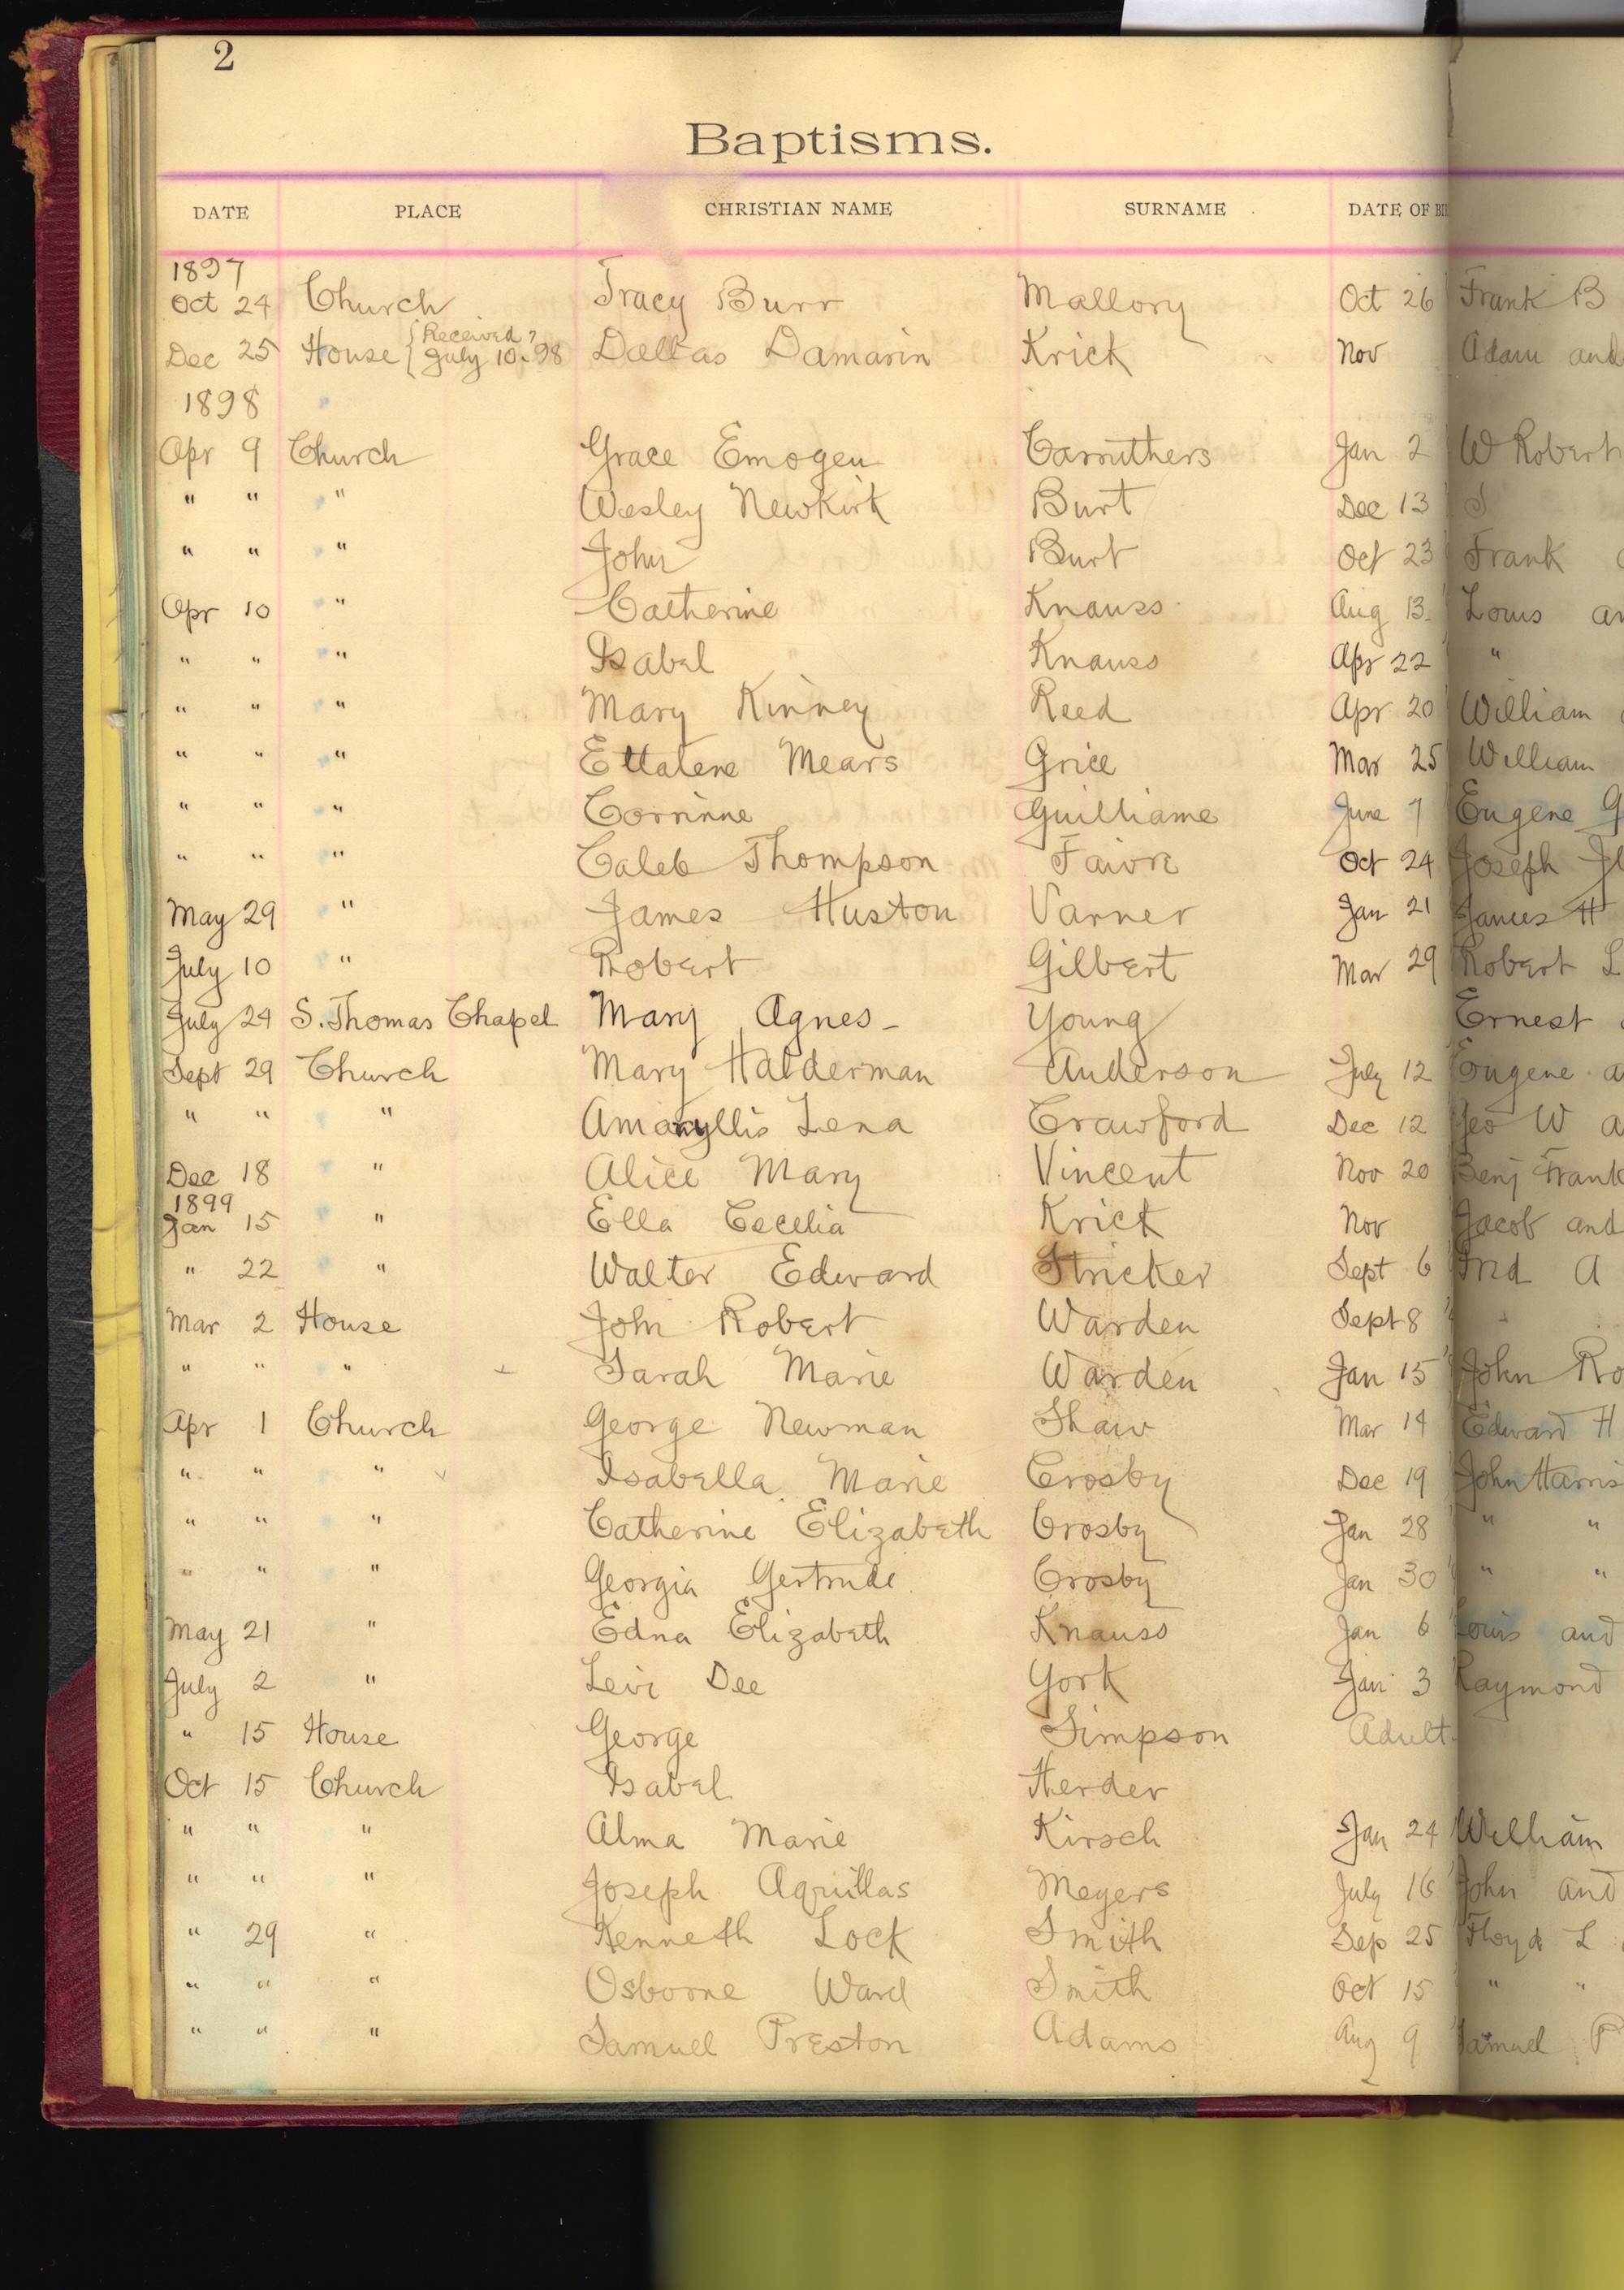 2
Baptisms.
DATE PLACE CHRISTIAN NAME SURNAME DATE OF BI
1897
Oct 24 Church Tracy Burr Mallory Oct 26 Frank B
{Received?
Dec 25 House {July 10-98 Dallas Damarin Krick Nov Adam and
1898 "
Apr 9 Church Grace Emogen Carruthers Jan 2 W Robert
" " " Wesley Newkirk Burt Dec 13 S
" " " John Burt Oct 23 Frank
Apr 10 " Catherine Knauss Aug 13 Louis an
" " " Isabel Knauss Apr 22 "
" " " Mary Kinney Reed Apr 20 William
" " " Ettalene Mears Grice Mar 25 William
" " " Corrinne Guilliame June 7 Eugene G
" " " Caleb Thompson Faivre Oct 24 Joseph
May 29 " James Huston Varner Jan 21 James H
July 10 " Robert Gilbert Mar 29 Robert L
July 24 S. Thomas Chapel Mary Agnes- Young Ernest
Sept 29 Church Mary Halderman Anderson July 12 Eugene a
" " " Amaryllis Lena Crawford Dec 12 Geo W a
Dec 18 " Alice Mary Vincent Nov 20 Benj Frank
1899
Jan 15 " Ella Cecelia Krick Nov Jacob and
" 22 " Walter Edward Stricker Sept 6 Fred A
Mar 2 House John Robert Warden Sept 8
" " " Sarah Marie Warden Jan 15 John Ro
Apr 1 Church George Newman Shaw Mar 14 Edward H
" " " Isabella Marie Crosby Dec 19 John Harris
" " " Catherine Elizabeth Crosby Jan 28 " "
" " " Georgia Gertrude Crosby Jan 30 " "
May 21 " Edna Elizabeth Knauss Jan 6 Louis and
July 2 " Levi Dee York Jan 3 Raymond
" 15 House George Simpson Adult
Oct 15 Church Isabel Herder
" " " Alma Marie Kirsch Jan 24 William
" " " Joseph Aquillas Meyers July 16 John and
" 29 " Kenneth Lock Smith Sep 25 Floyd L
" " " Osborne Ward Smith Oct 15 " "
" " " Samuel Preston Adams Aug 9 Samuel P